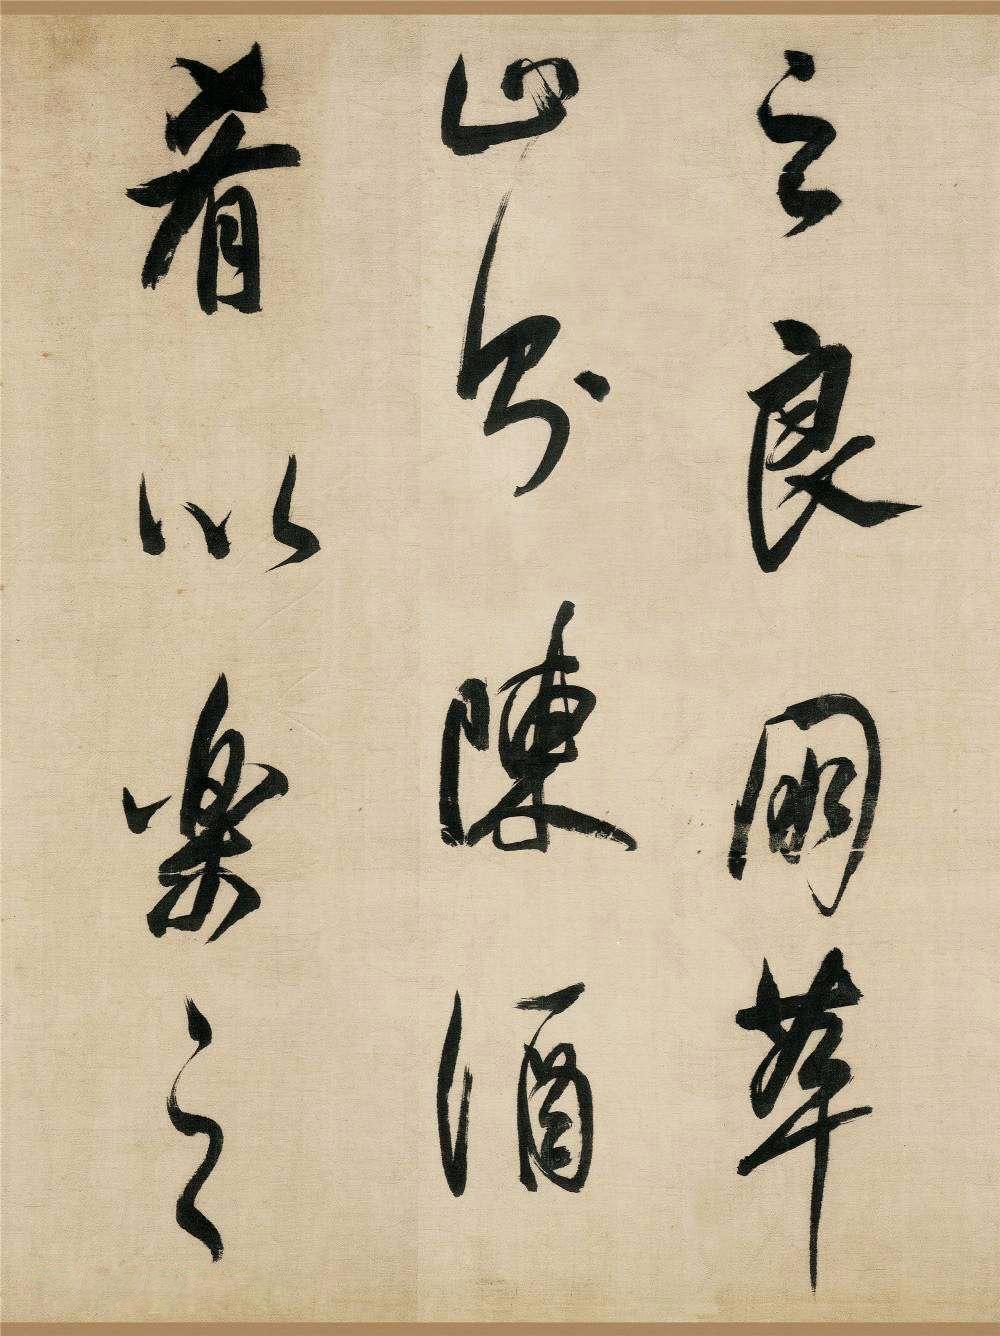 之良朋萃
止則陳酒
肴以樂之